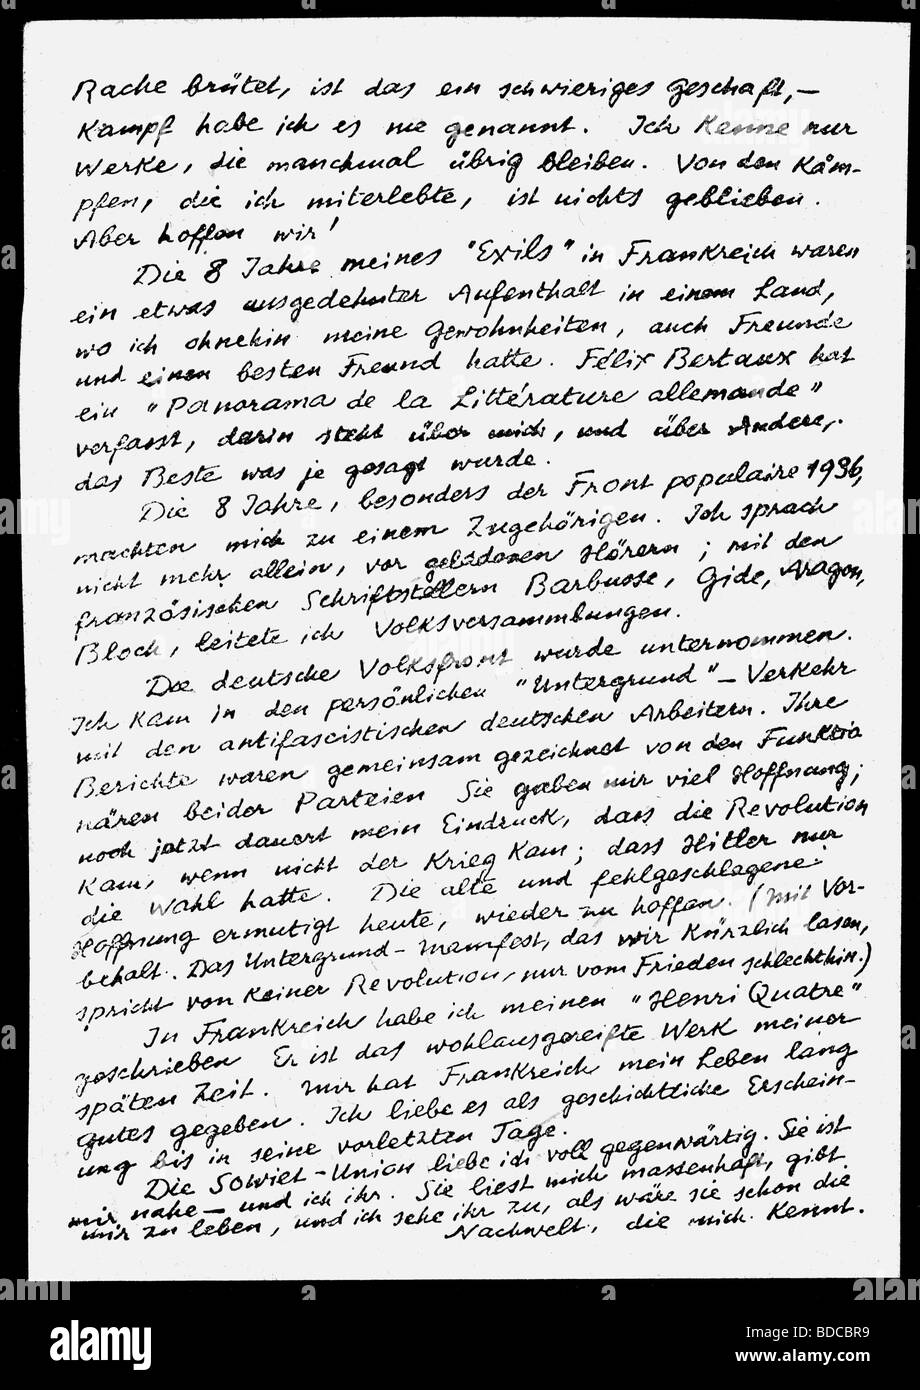 Rache brütet, ist das ein schwieriges Geschäft, —
Kampf habe ich es nie genannt. Ich kenne nur
Werke, die manchmal übrig bleiben. Von den Käm-
pfen, die ich miterlebte, ist nichts geblieben.
Aber hoffen wir!
Die 8 Jahre meines "Exils" in Frankreich waren
ein etwas ausgedehnter Aufenthalt in einem Land,
wo ich ohnehin meine Gewohnheiten, auch Freunde
und einen besten Freund hatte. Félix Bertaux hat
ein "Panorama de la Littérature allemande"
verfasst, darin steht über mich, und über Andere,
das Beste was je gesagt wurde.
Die 8 Jahre, besonders der Front populaire 1936,
machten mich zu einem Zugehörigen. Ich sprach
nicht mehr allein, vor geladenen Hörern; mit den
französischen Schriftstellern Barbusse, Gide, Aragon,
Bloch, leitete ich Volksversammlungen.
Die deutsche Volksfront wurde unternommen.
Ich kam in den persönlichen "Untergrund" – Verkehr
mit den antifascistischen deutschen Arbeitern. Ihre
Berichte waren gemeinsam gezeichnet von den Funktio
nären beider Parteien Sie gaben mir viel Hoffnung;
noch jetzt dauert mein Eindruck, dass die Revolution
kam, wenn nicht der Krieg kam; dass Hitler nur
die Wahl hatte. Die alte und fehlgeschlagene
Hoffnung ermutigt heute, wieder zu hoffen. (Mit Vor-
behalt. Das Untergrund-Manifest, das wir kürzlich lasen,
spricht von keiner Revolution, nur vom Frieden schlechthin.)
In Frankreich habe ich meinen "Henri Quatre"
geschrieben Er ist das wohlausgereifte Werk meiner
späten Zeit. Mir hat Frankreich mein Leben lang
gutes gegeben. Ich liebe es als geschichtliche Erschein-
ung bis in seine vorletzten Tage.
Die Sowiet-Union liebe ich voll gegenwärtig. Sie ist
mir nahe – und ich ihr. Sie liest mich massenhaft, gibt
mir zu leben, und ich sehe ihr zu, als wäre sie schon die
Nachwelt, die mich kennt.
alamy
Image ID: BDCBR9
www.alamy.com